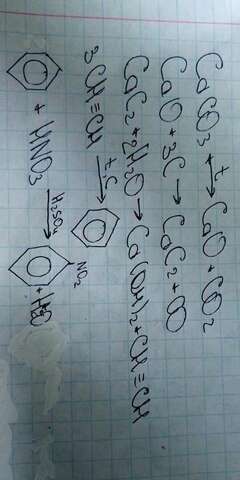 CaCO₃ ⟷ᵗ CaO + CO₂
CaO + 3C → CaC₂ + CO
CaC₂ + 2H₂O → Ca(OH)₂ + CH≡CH
3CH≡CH →ᵗ,ᶜ
+ HNO₃ →ᴴ²ˢᴼ⁴ NO₂ + H₂O